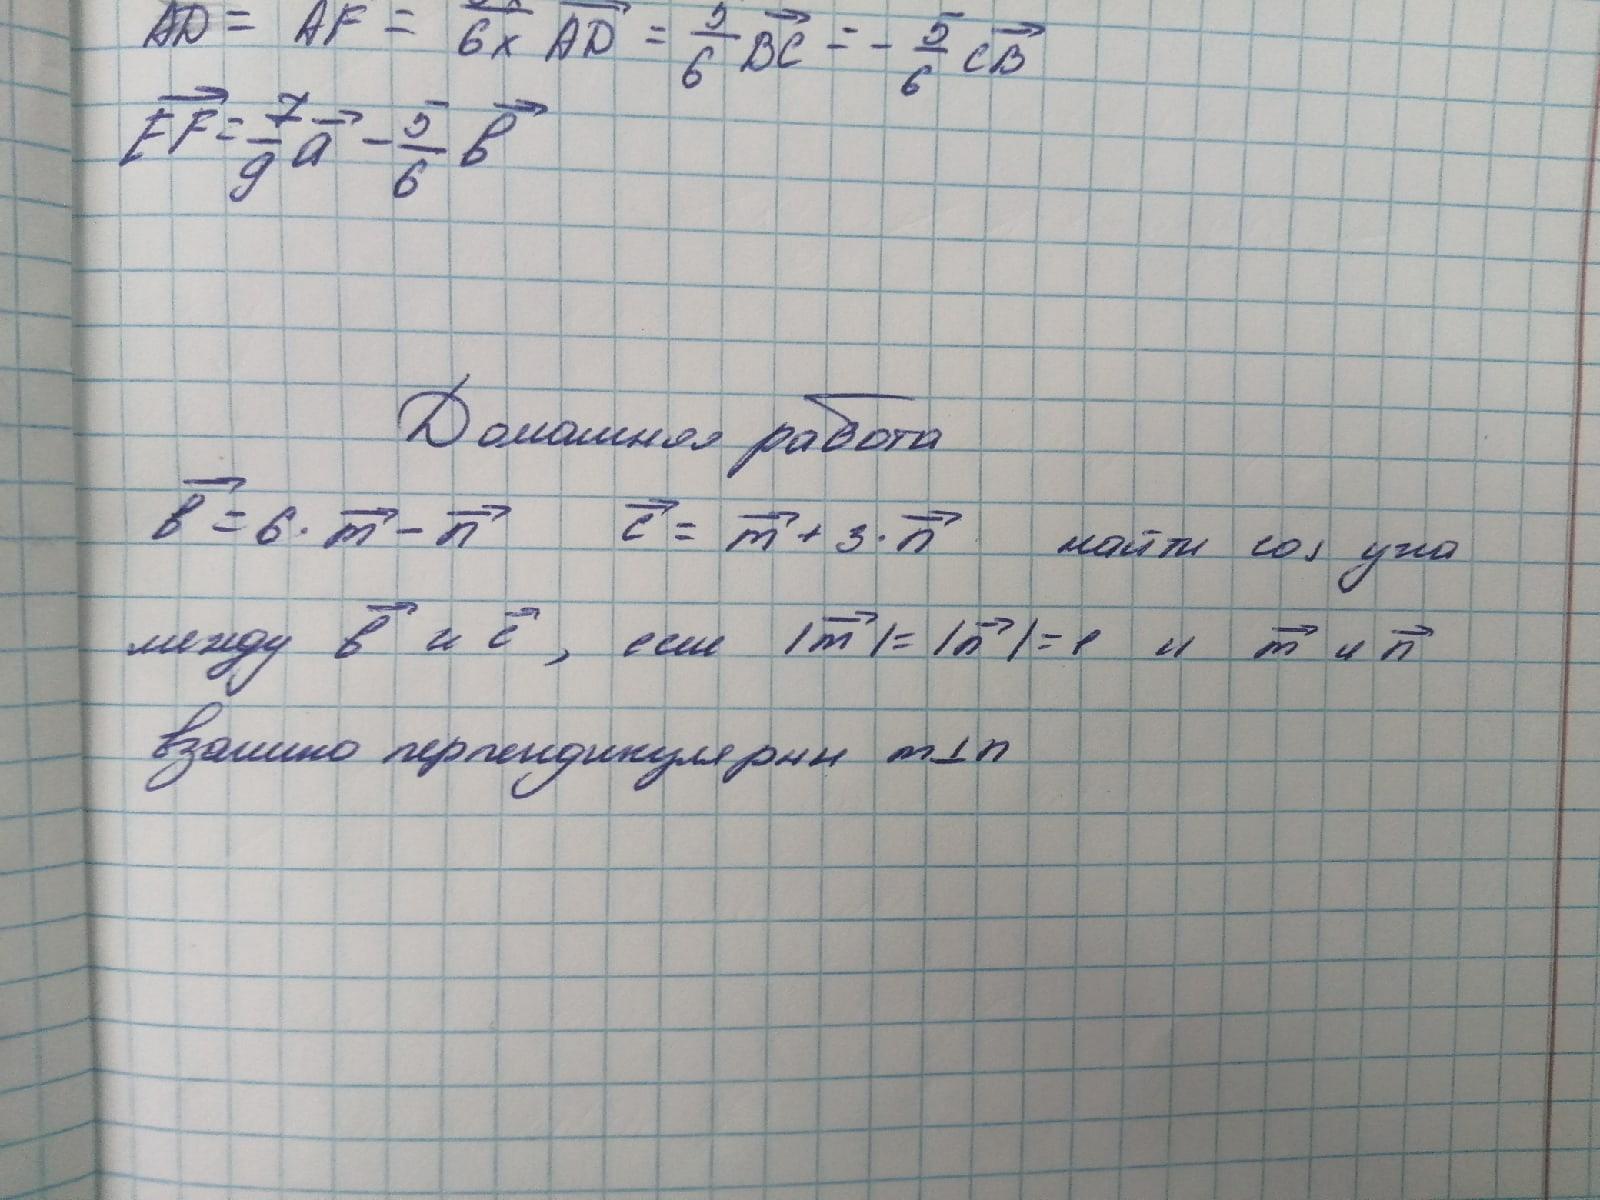 AD = AF = 5x/6x AD = 5/6 BC = - 5/6 CB
EF = 7/9 a - 5/6 b
Домашняя работа
b = 6 · m - n c = m + 3 · n найти cos угла
между b и c, если |m| = |n| = 1 и m и n
взаимно перпендикулярны m⊥n